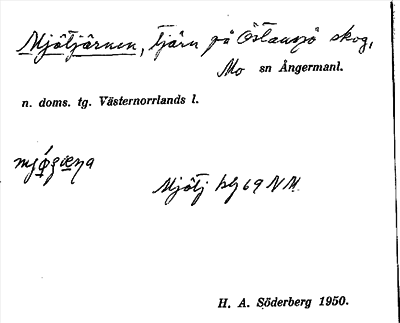 Mjötjärnen, tjärn på Östansjö skog,
Mo sn Ångermanl.
n. doms. tg. Västernorrlands l.
Mjötj bl 69 NM
H. A. Söderberg 1950.